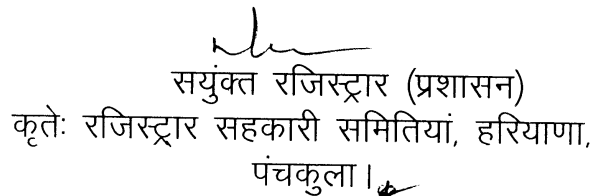 सयुंक्त रजिस्ट्रार (प्रशासन)
कृतेः रजिस्ट्रार सहकारी समितियां, हरियाणा,
पंचकुला।